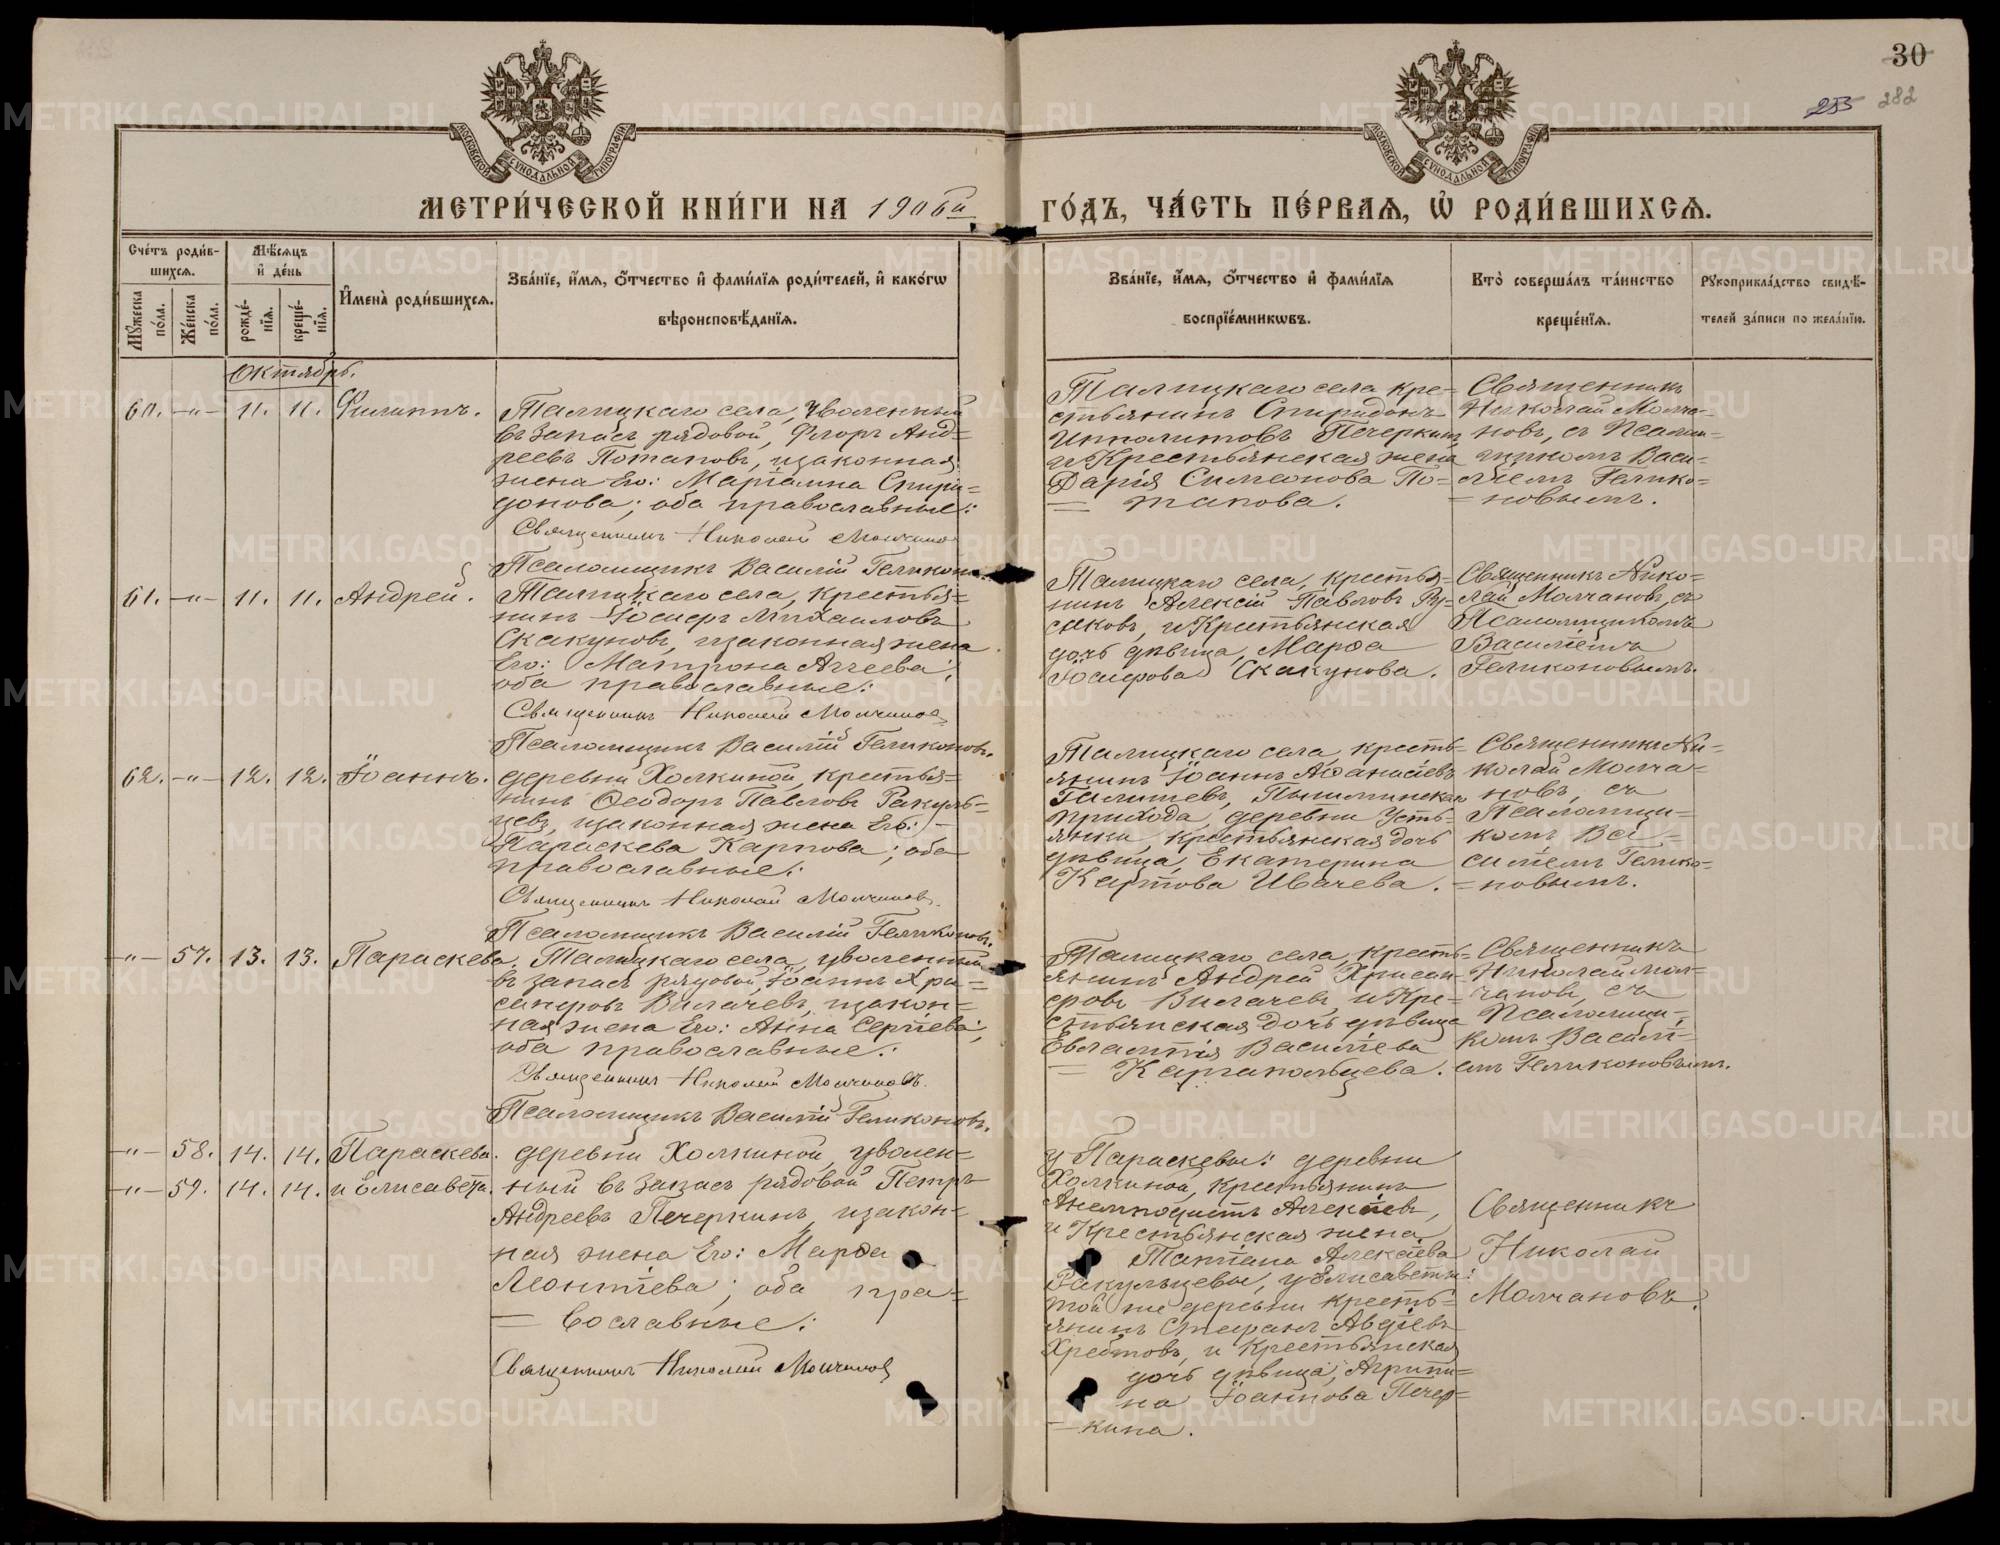 30
255 282
МОСКОВСКОЙ СУНОДАЛЬНОЙ ТИПОГРАФІИ
МОСКОВСКОЙ СУНОДАЛЬНОЙ ТИПОГРАФІИ
МЕТРИ́ЧЕСКОЙ КНИ́ГИ НА 1906й ГО́ДЪ, ЧА́СТЬ ПЕ́РВАѦ, Ѡ҆ РОДИ́ВШИХСѦ.
Сче́тъ роди́в-
шихсѧ.
Мꙋжеска по́ла.
Же́нска по́ла.
Мѣ́сѧцъ
и҆ де́нь
рожде́-
нїѧ.
креще́-
нїѧ.
И҆мена̀ роди́вшихсѧ.
Зва́нїе, и҆́мѧ, ѻ҆́тчество и҆ фами́лїѧ роди́телей, и҆ како́гѡ
вѣроисповѣ́данїѧ.
Зва́нїе, и҆́мѧ, ѻ҆́тчество и҆ фами́лїѧ
воспрїе́мникѡвъ.
Кто̀ соверша́лъ та́инство
креще́нїѧ.
Рꙋкоприкла́дство свидѣ́-
телей за́писи по жела́нїю.
Октябрь.
60. -"- 11. 11. Филиппъ.
Талицкаго села, уволенный
въ запасъ рядовой, Флоръ Анд=
реевъ Потаповъ, и законная
жена Его: Маріамна Спири=
донова; оба православные:
Священникъ Николай Молчановъ
Псаломщикъ Василій Геликоновъ.
Талицкаго села кре-
стьянинъ Спиридонъ
Ипполитовъ Печеркинъ
и Крестьянская жена
Дарія Симеонова По=
= тапова.
Священникъ
Николай Молча-
новъ, съ Псалом=
щикомъ Васи-
ліемъ Гелико=
= новымъ.
61. -"- 11. 11. Андрей.
Талицкаго села, крестья=
нинъ Іосифъ Михаиловъ
Скакуновъ, и законная жена
Его: Матрона Агѳеева;
оба православные:
Священникъ Николай Молчановъ
Псаломщикъ Василій Геликоновъ.
Талицкаго села, крестья=
нинъ Алексій Павловъ Ру=
саковъ, и Крестьянская
дочь дѣвица, Марѳа
Іосифова Скакунова.
Священникъ Нико=
лай Молчановъ, съ
Псаломщикомъ
Василіемъ
Геликоновымъ.
62. -"- 12. 12. Іоаннъ.
деревни Холкиной, крестья=
нинъ Ѳеодоръ Павловъ Ракуль=
цевъ, и законная жена Его: -
Параскева Карпова; оба
православные:
Священникъ Николай Молчановъ.
Псаломщикъ Василій Геликоновъ.
Талицкаго села, кресть=
янинъ Іоаннъ Аѳанасіевъ
Галишевъ, Пышминскаго
прихода, деревни Усть-
янки, крестьянская дочь
дѣвица, Екатерина
Карпова Ивачева.
Священникъ Ни-
колай Молча-
новъ, съ
Псаломщи-
комъ Ва-
силіемъ Гелико=
= новымъ.
-"- 57. 13. 13. Параскева.
Талицкаго села, уволенный
въ запасъ рядовой, Іоаннъ Хри=
санфовъ Вилачевъ, и закон=
ная жена Его: Анна Сергіева;
оба православные:
Священникъ Николай Молчановъ.
Псаломщикъ Василій Геликоновъ.
Талицкаго села, кресть=
янинъ Андрей Хрисан=
фовъ Вилачевъ, и Кре=
стьянская дочь дѣвица
Евлампія Василіева
= Каргапольцева.
Священникъ
Николай Мол-
чановъ, съ
Псаломщи-
комъ Василі-
емъ Геликоновымъ.
-"- 58. 14. 14. Параскева.
-"- 59. 14. 14. и Елисавета.
деревни Холкиной, уволен=
ный въ запасъ рядовой Петръ
Андреевъ Печеркинъ, и закон=
ная жена Его: Марѳа
Леонтіева; оба пра=
= вославные:
Священникъ Николай Молчановъ
у Параскевы: деревни
Холкиной, крестьянинъ
Анемподистъ Алексіевъ,
и Крестьянская жена
Татіана Алексіева
Ракульцевы, у Елисаветы:
той же деревни кресть=
янинъ Стефанъ Авдіевъ
Хребтовъ, и Крестьянская
дочь дѣвица, Агрипи=
на Іоаннова Печер=
= кина.
Священникъ
Николай
Молчановъ.
METRIKI.GASO-URAL.RU